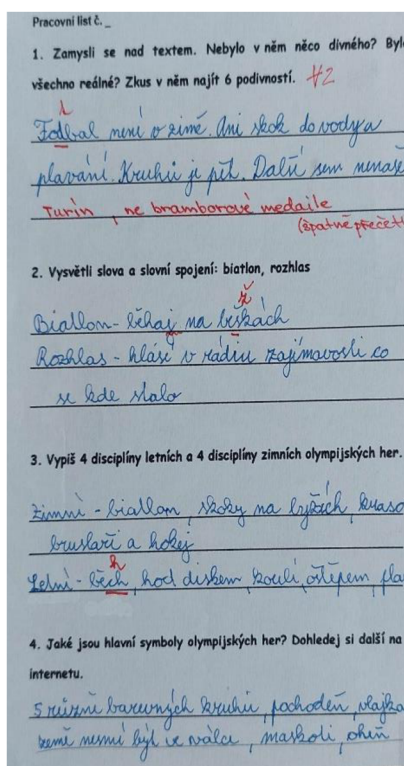 Pracovní list č. _
1. Zamysli se nad textem. Nebylo v něm něco divného? Bylo
všechno reálné? Zkus v něm najít 6 podivností. +2
t
Fodbal není v zimě. Ani skok do vody a
plavání. Kruhů je pět. Další sem nenaše
Turín, ne bramborové medaile
(špatně přečetl
2. Vysvětli slova a slovní spojení: biatlon, rozhlas
ž
Biatlon - běhaj na beškách
Rozhlas - hlásí v rádiu zajímavosti co
se kde stalo
3. Vypiš 4 disciplíny letních a 4 disciplíny zimních olympijských her.
Zimní - biatlon, skoky na lyžích, kraso
bruslaři a hokej
h
Letní - běch, hod diskem, koulí, oštěpem, pla
4. Jaké jsou hlavní symboly olympijských her? Dohledej si další na
internetu.
5 různě barevných kruhů, pochodeň, vlajka
země nesmí být ve válce, maskoti, oheň